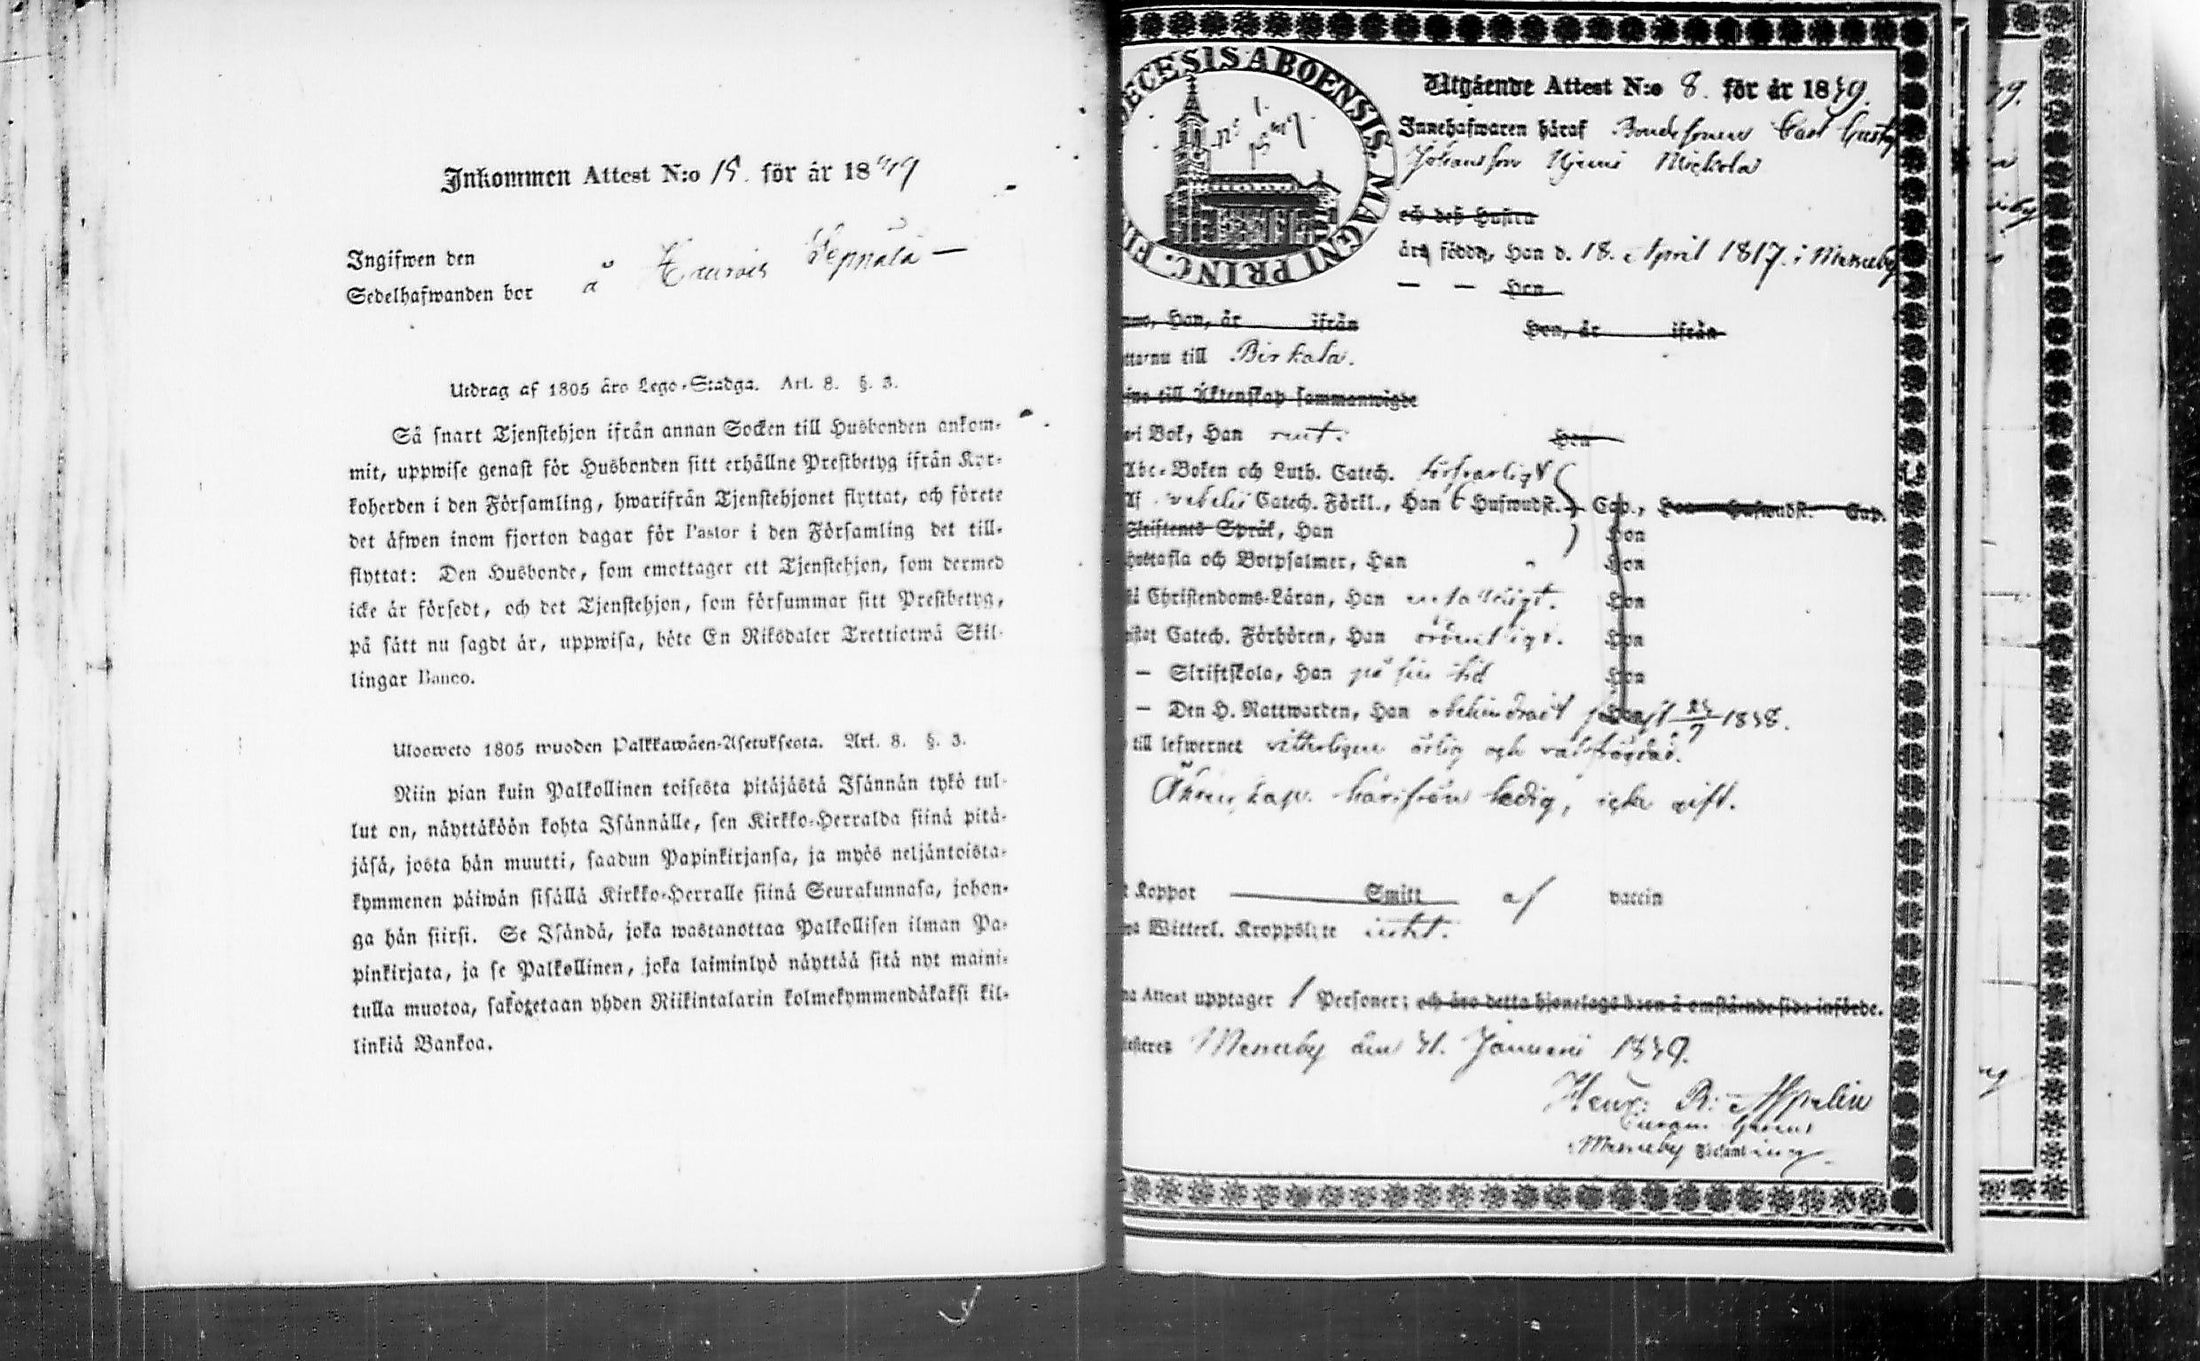 Inkommen Attest N:o 15. för år 1849
Ingifwen den
Sedelhafwanden bor å
Utdrag af 1805 års Lego-Stadga. Art. 8. §. 3.
Så snart Tjenstehjon ifrån annan Socken till Husbonden ankom-
mit, uppwise genast för Husbonden sitt erhållne Prestbetyg ifrån Kyr-
koherden i den Församling, hwarifrån Tjenstehjonet flyttat, och förete
det äfwen inom fjorton dagar för Pastor i den Församling det till-
flyttat: Den Husbonde, som emottager ett Tjenstehjon, som dermed
icke är försedt, och det Tjenstehjon, som försummar sitt Prestbetyg,
på sätt nu sagdt är, uppwisa, böte En Riksdaler Trettiotwå Skil-
lingar Banco.
Ulosweto 1805 wuoden Palkkawäen-Asetuksesta. Art. 8. §. 3.
Niin pian kuin Palkollinen toisesta pitäjästä Isännän tykö tul-
lut on, näyttäköön kohta Isännälle, sen Kirkko-Herralda siinä pitä-
jäsä, josta hän muutti, saadun Papinkirjansa, ja myös neljäntoista-
kymmenen päiwän sisällä Kirkko-Herralle siinä Seurakunnasa, johon-
ga hän siirsi. Se Isändä, joka wastanottaa Palkollisen ilman Pa-
pinkirjata, ja se Palkollinen, joka laiminlyö näyttää sitä nyt maini-
tulla muotoa, sakotetaan yhden Riikintalarin kolmekymmendäkaksi kil-
linkiä Bankoa.
ECESIS ABOENSIS. MAGNI PRINC. FI
Utgående Attest N:o 8. för år 1839.
Innehafwaren häraf Bondesonen Carl Gustaf
Johansson Mickola
och deß Hustru
äro födde, Han d. 18. April 1817. i Messuby
— — Hon
Han, år ifrån Hon, år ifrån
till Birkala.
till Äktenskap sammanwigde
i Bok, Han rent. Hon
Abc-Boken och Luth. Catech. försvarligt
Af Catech. Förkl., Han 6 Hufwudst. Cap., Hon Hufwudst. Cap.
Skriftens Språk, Han Hon
Hustafla och Botpsalmer, Han Hon
Christendoms-Läran, Han Hon
Catech. Förhören, Han ordentligt. Hon
— Skriftskola, Han på sin tid Hon
— Den H. Nattwarden, Han obehindradt Hon 1838.
till lefwernet witterligen ärlig och
Äktenskap härifrån ledig, icke gift.
Koppor Smitt af vaccin
Witterl. Kroppslyte intet.
Attest upptager 1 Personer; och äro detta hjonelags barn å omstående sida införde.
Messuby den 31. Januari 1839.
Henr: R: Appelin
Messuby Församling.